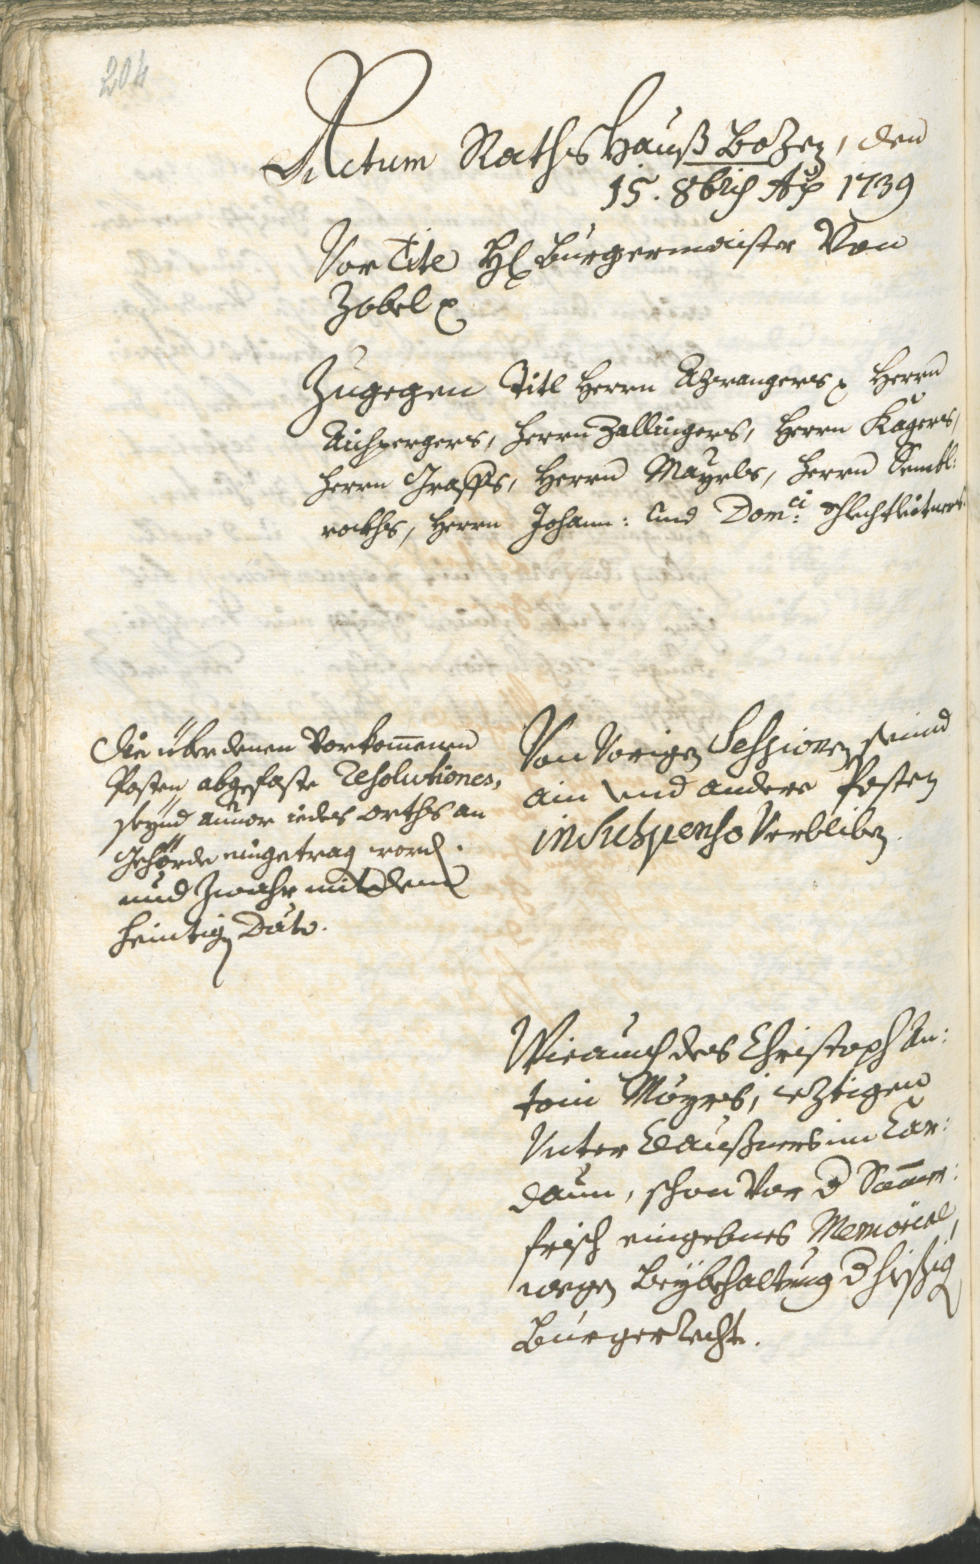 204
Actum Raths Hauß Bozen, den
15. 8bris Ao 1739
Vor Titl H: Burgermaister Von
Zobel
Zugegen Titl Herrn Azwangers, Herrn
Aichpergers, Herrn Zallingers, Herrn Kagers,
Herrn Graffs, Herrn Mayrls, Herrn Sembl:
rockhs, Herrn Johann: und Domci: Schlechtleitners
Die über denen Vorkommenen
Posten abgefaste Resolutiones,
seynd annor iedes orths an
Gehörde eingetrag word.
und Zwahr mit dem
heintig Dato.
Von Vorigen Sessionen seind
ain und andere Posten
in Suspenso Verbliben.
Wie auch des Christoph An:
toni Mayrs, iezigen
Unter Claußners im Car:
daun, schon Vor d Sommer:
frisch eingebnes Memorial,
wegen Beybehaltung d hießig
Burgerrecht.